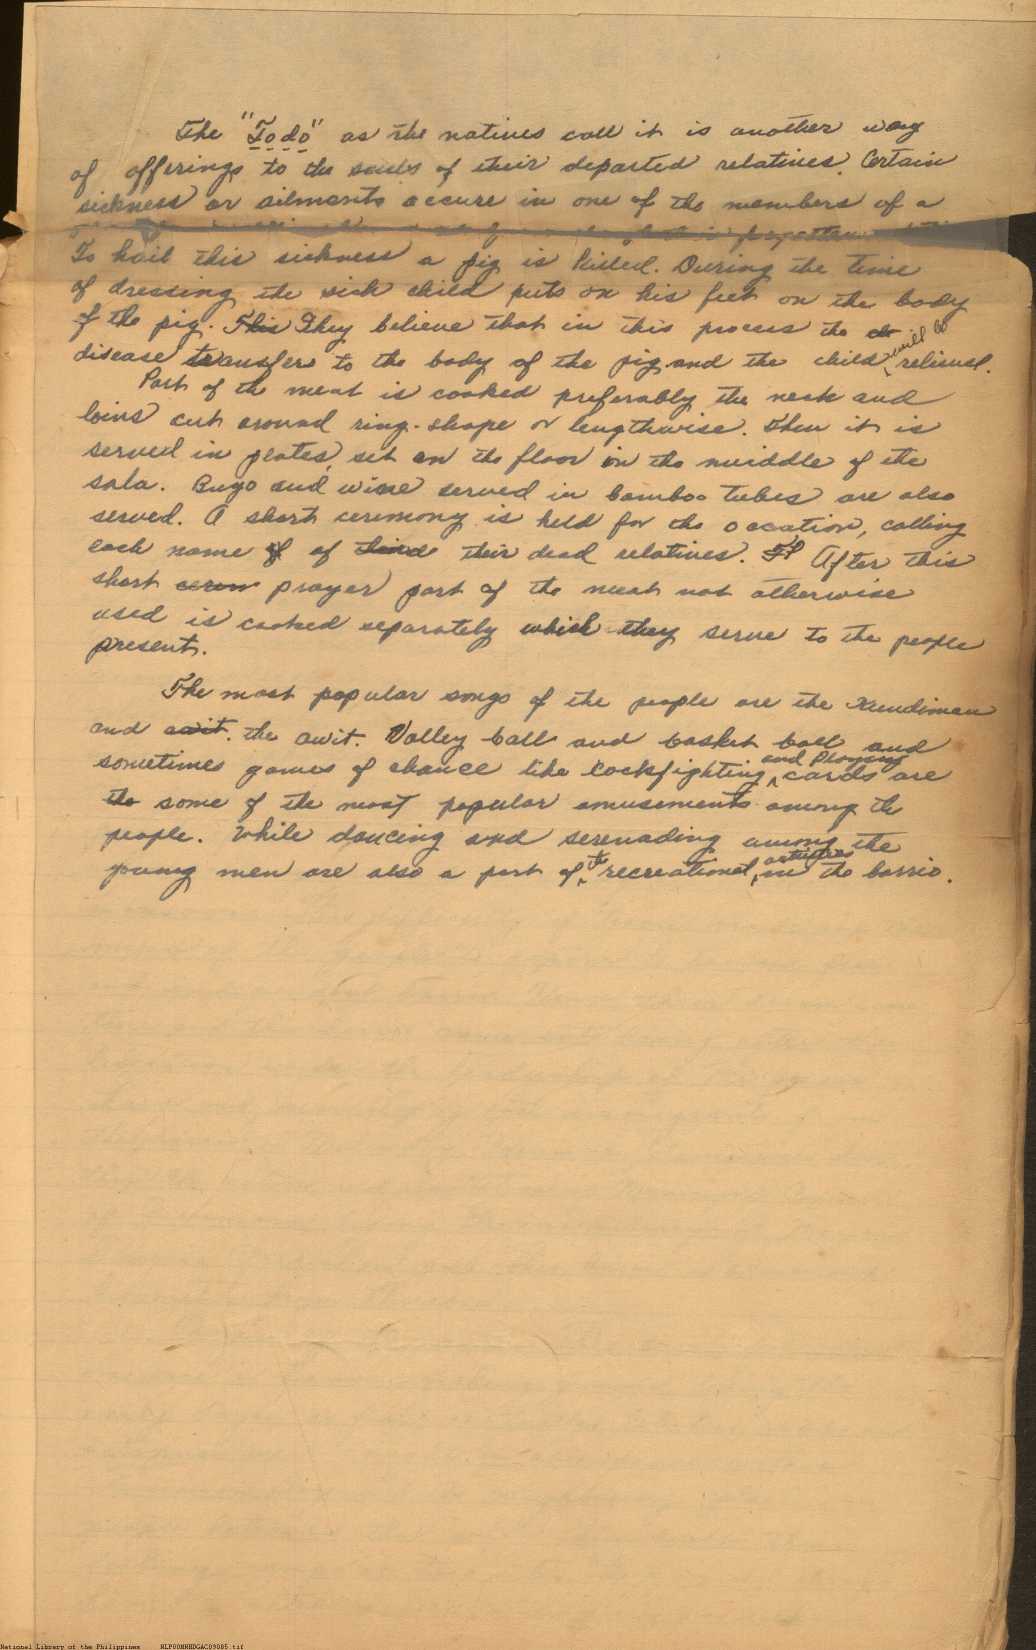 The "Todo" as the natives call it is another way
of offerings to the souls of their departed relatives. Certain
sickness or ailments occure in one of the members of a
forgotten
To hail this sickness a pig is killed. During the time
of dressing the sick child puts on his feet on the body
of the pig. This They believe that in this process the
disease transfers to the body of the pig and the child will be relieved.
Part of the meat is cooked preferably the neck and
loins cut around ring-shape or lengthwise. Then it is
served in plates, set on the floor in the middle of the
sala. Buyo and wine served in bamboo tubes are also
served. A short ceremony is held for the occation, calling
each name of of their dead relatives. After this
short cerem prayer part of the meat not otherwise
used is cooked separately which they serve to the people
present.
The most popular songs of the people are the Kundiman
and awit. the awit. Valley ball and basket ball and
sometimes games of chance like cockfighting and playing cards are
the some of the most popular amusements among the
people. While dancing and serenading among the
young men are also a part of the recreational activities in the barrio.
National Library of the Philippines NLP00MNHDGAC09085.tif